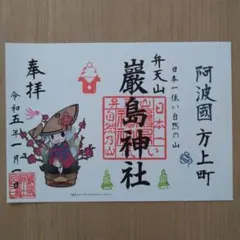 阿波國 方上町
日本一低い自然の山
弁天山
巖島神社
奉拝
令和五年一月一日